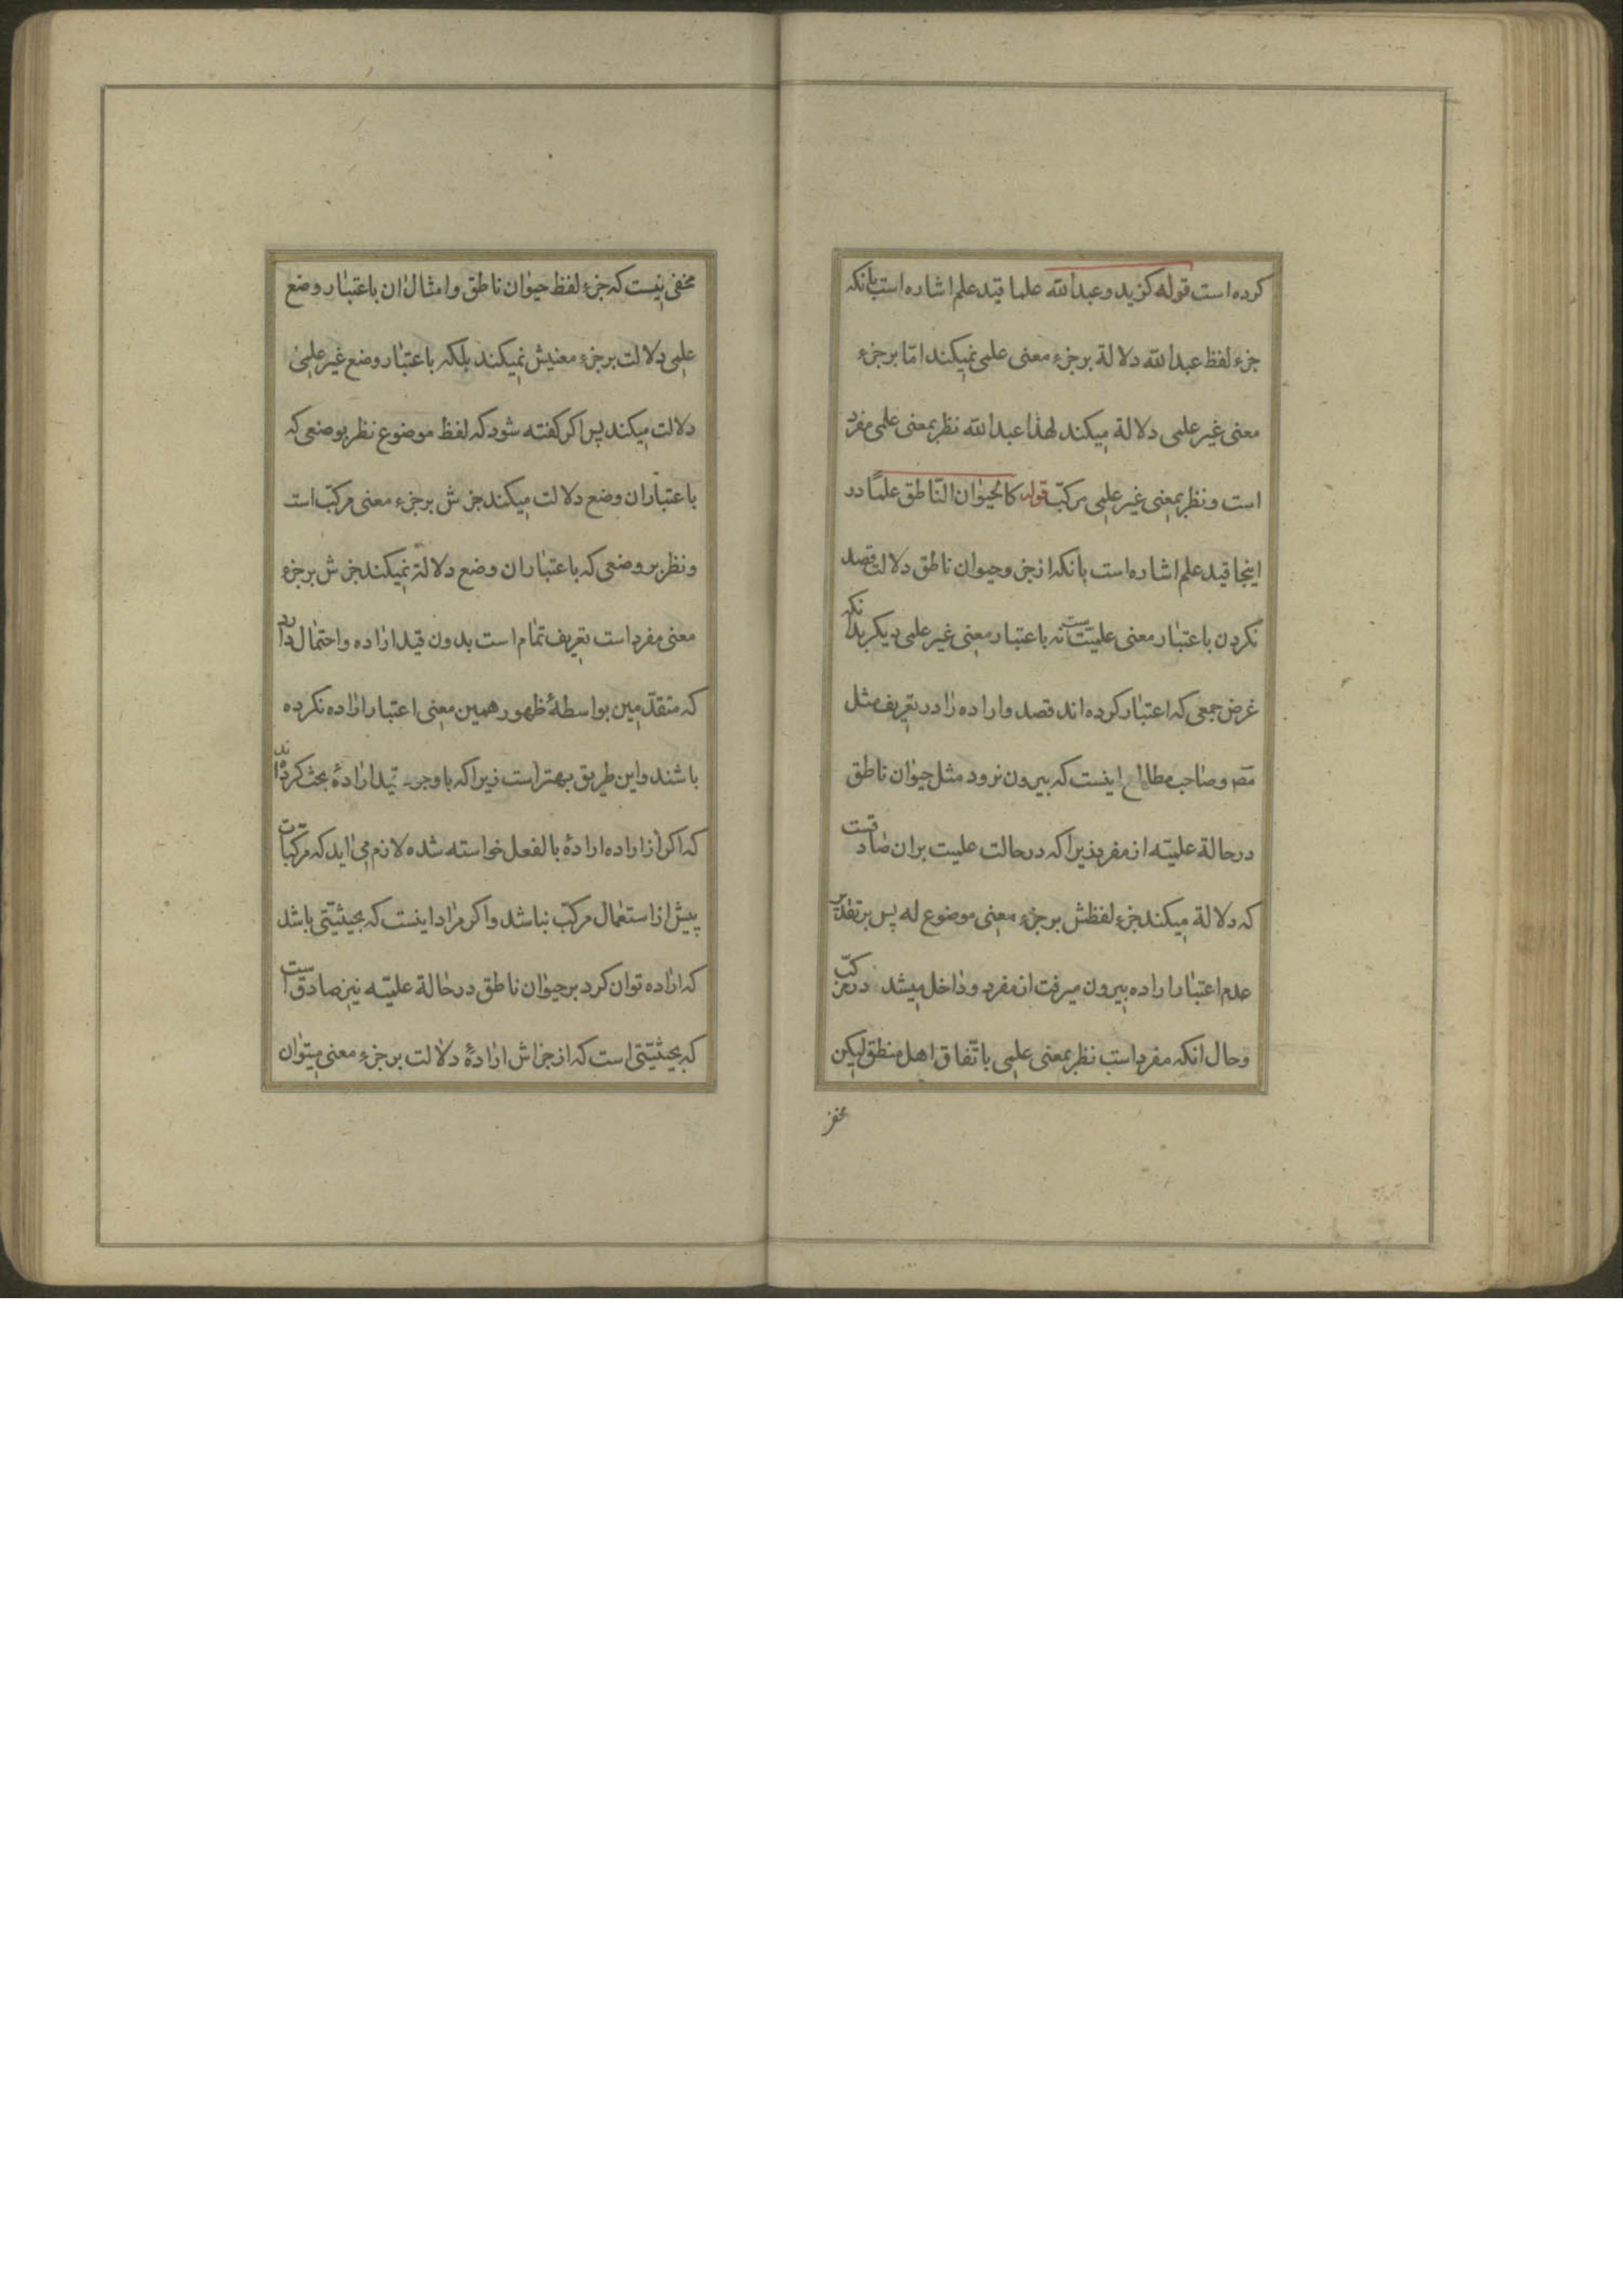 کرده است قوله کزید و عبدالله علما قید علم اشاره است بانکه
جزء لفظ عبدالله دلالة بر جزء معنی علمی نمیکند اما بر جزء
معنی غیر علمی دلالة میکند لهذا عبدالله نظر بمعنی علمی مفرد
است و نظر بمعنی غیر علمی مرکبّ قوله کالحیوان النّاطق علمًا در
اینجا قید علم اشاره است بانکه از جزو حیوان ناطق دلالت قصد
نکردن باعتبار معنی علمیّتست نه باعتبار معنی غیر علمی دیکر بدانکه
غرض جمعی که اعتبار کرده اند قصد و اراده را در تعریف مثل
مصّ و صاحب مطالع اینست که بیرون نرود مثل حیوان ناطق
در حالة علمیّه از مفرد زیرا که در حالت علمیت بران صادقست
که دلالة میکند جزء لفظش بر جزء معنی موضوع له پس بر تقدیر
عدم اعتبار اراده بیرون میرفت از مفرد و داخل میشد در مرکبّ
و حال انکه مفرد است نظر بمعنی علمی باتّفاق اهل منطق لیکن
مخفی
مخفی نیست که جزء لفظ حیوان ناطق و امثال ان باعتبار وضع
علمی دلالت بر جزء معنیش نمیکند بلکه باعتبار وضع غیر علمی
دلالت میکند پس اکر کفته شود که لفظ موضوع نظر بوضعی که
باعتبار ان وضع دلالت میکند جزش بر جزء معنی مرکبّ است
و نظر بر وضعی که باعتبار ان وضع دلالة نمیکند جزش بر جزء
معنی مفرد است تعریف تمام است بدون قید اراده و احتمال دارد
که متقدّمین بواسطهٔ ظهور همین معنی اعتبار اراده نکرده
باشند و این طریق بهتر است زیرا که با وجود قید ارادهٔ بحث کرده اند
که اکر از اراده ارادهٔ بالفعل خواسته شده لازم می اید که مرکّبات
پیش از استعمال مرکبّ نباشد و اکر مراد اینست که بحیثیّتی باشد
که اراده توان کرد بر حیوان ناطق در حالة علمیّه نیز صادق است
که بحیثیّتی است که از جزاش ارادهٔ دلالت بر جزء معنی میتوان